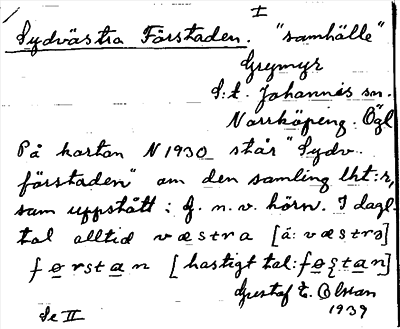 I
Sydvästra Förstaden. "samhälle"
Grymyr
S:t. Johannis sn.
Norrköping. Ögl
På kartan N 1930 står "Sydv.
förstaden" om den samling lht:r,
som uppstått i G. n. v. hörn. I dagl.
tal alltid væstra [á: væstrə]
førstan [hastigt tal: føʂtan]
Gustaf E. Olsson
1939
Se II